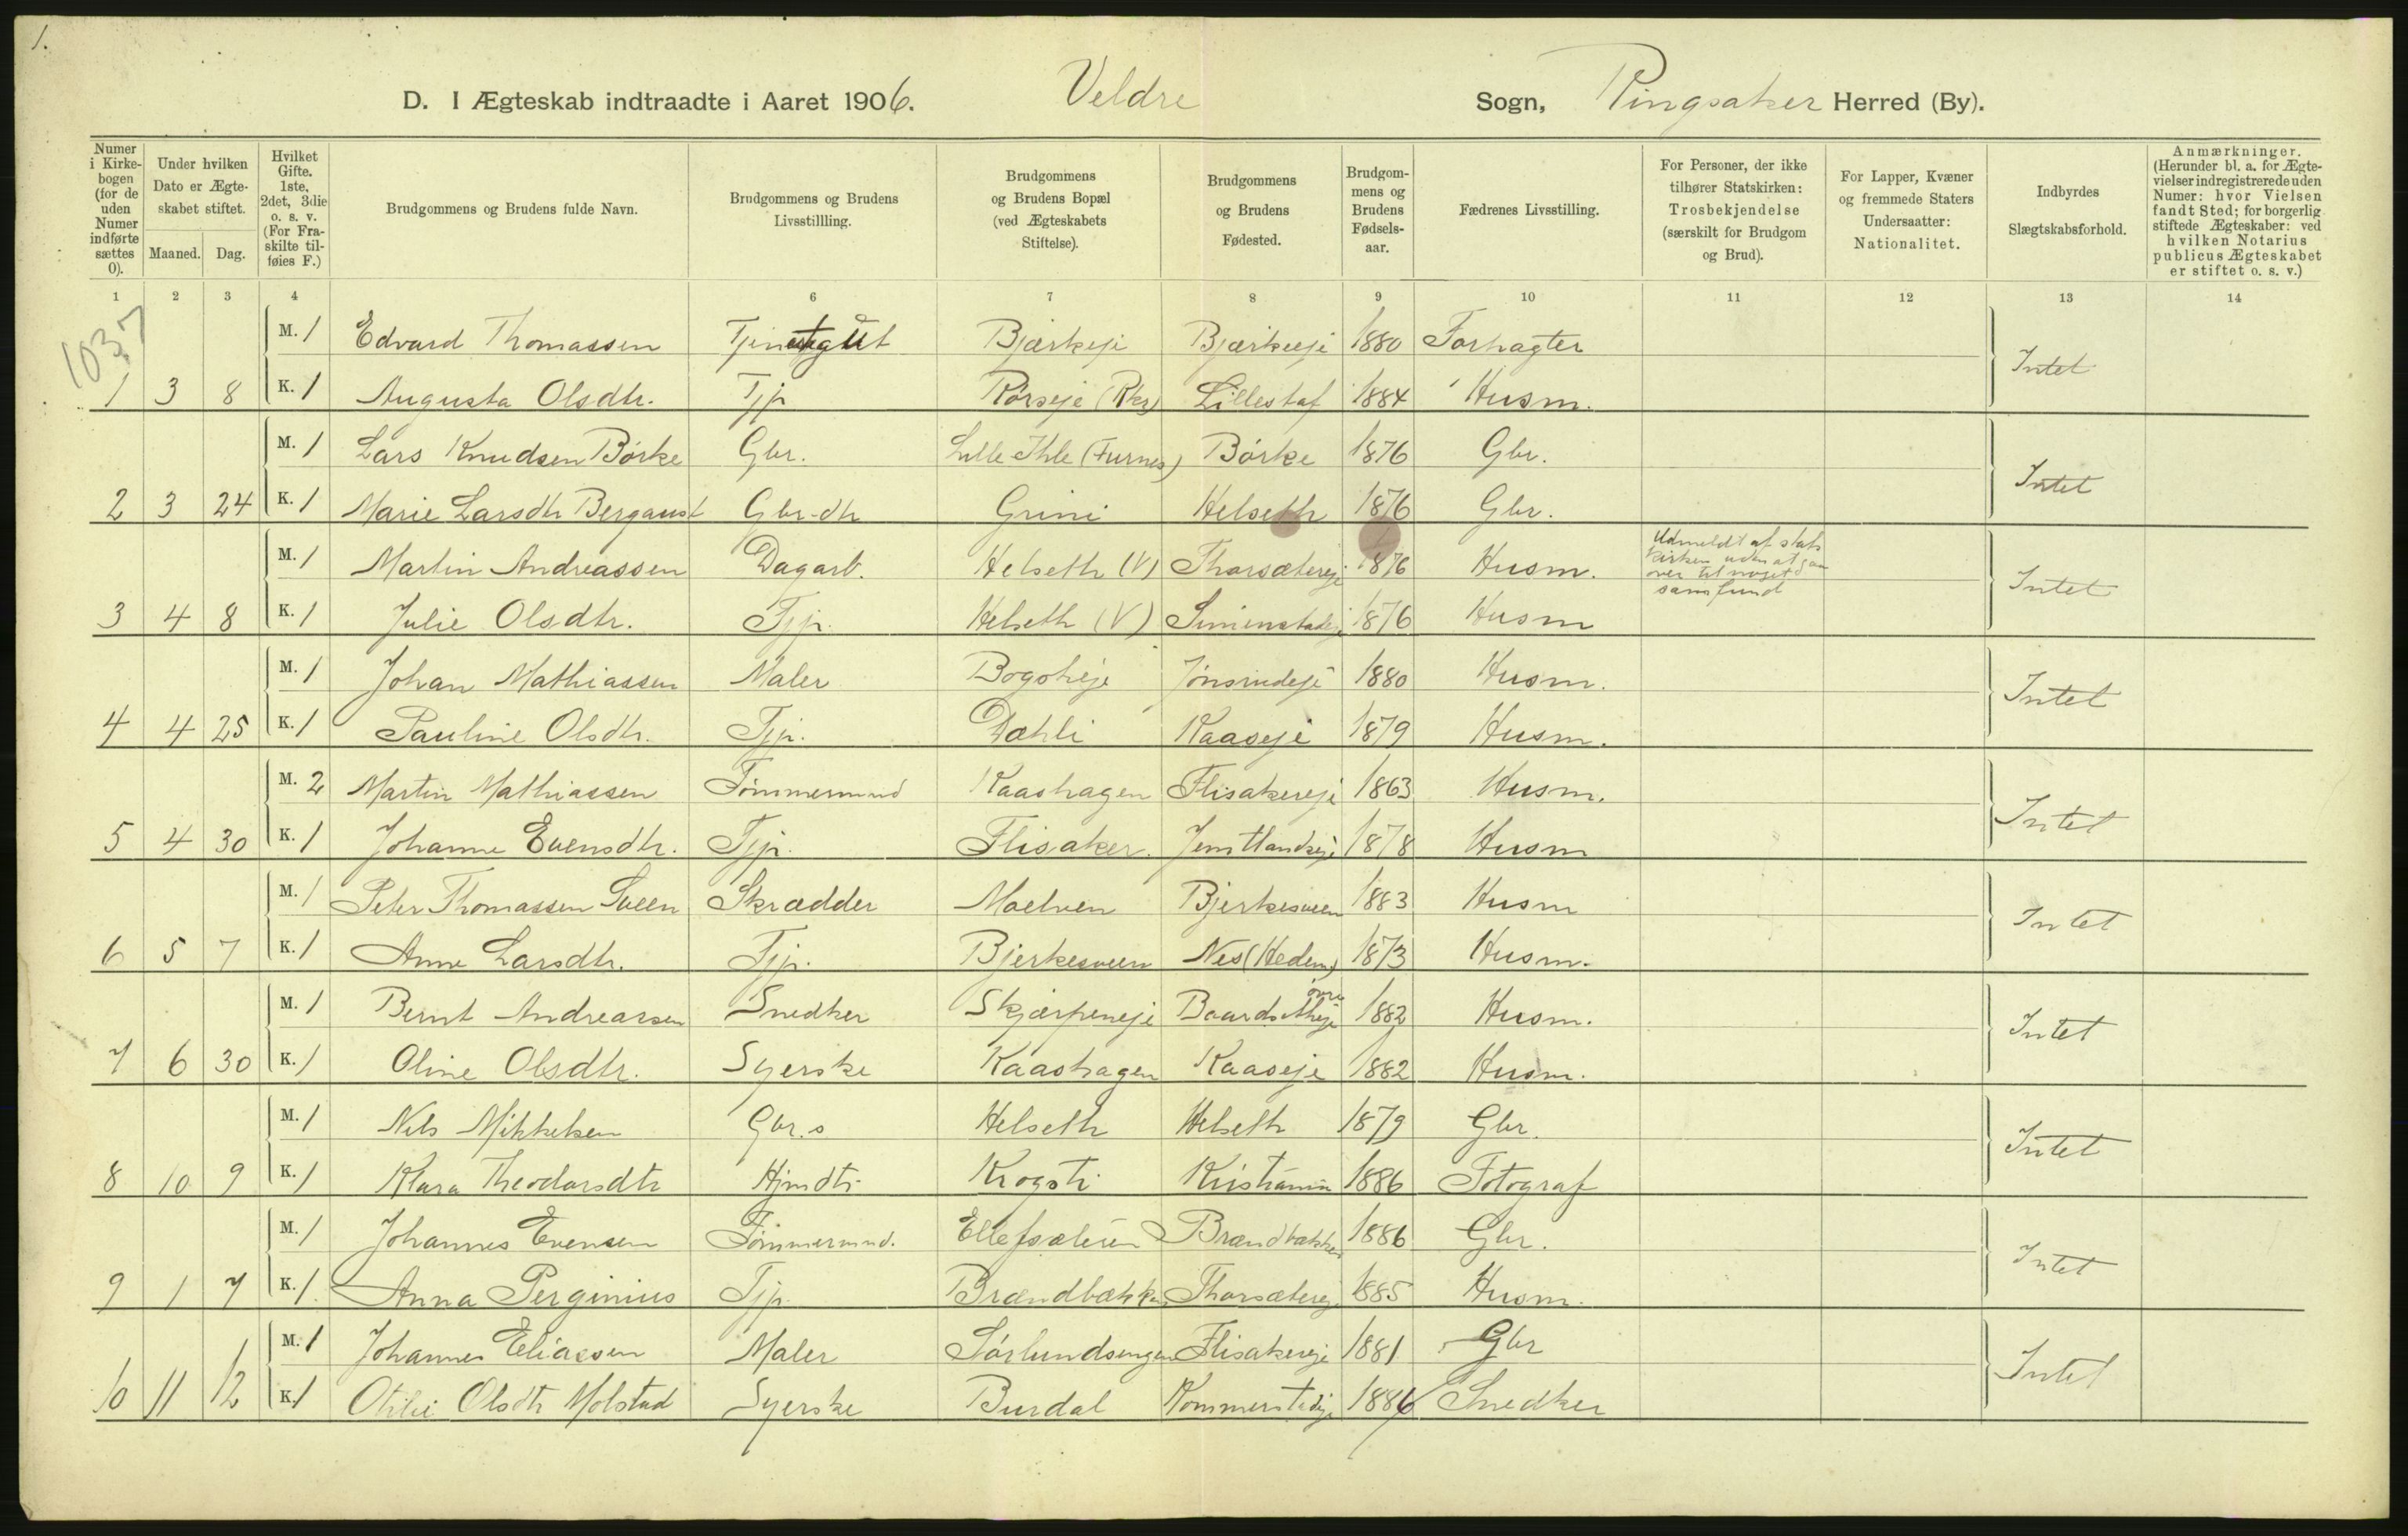 1.
D. I Ægteskab indtraadte i Aaret 1906. Veldre Sogn, Ringsaker Herred (By).
Numer i Kirkebogen (for de uden Numer indførte sættes 0).
Under hvilken Dato er Ægteskabet stiftet.
Maaned. Dag.
Hvilket Gifte. 1ste, 2det, 3die o. s. v. (For Fraskilte tilføies F.)
Brudgommens og Brudens fulde Navn.
Brudgommens og Brudens Livsstillling.
Brudgommens og Brudens Bopæl (ved Ægteskabets Stiftelse).
Brudgommens og Brudens Fødested.
Brudgommens og Brudens Fødselsaar.
Fædrenes Livsstilling.
For Personer, der ikke tilhører Statskirken: Trosbekjendelse (særskilt for Brudgom og Brud).
For Lapper, Kvæner og fremmede Staters Undersaatter: Nationalitet.
Indbyrdes Slægtskabsforhold.
Anmærkninger. (Herunder bl. a. for Ægtevielser indregistrerede uden Numer: hvor Vielsen fandt Sted; for borgerlig stiftede Ægteskaber: ved hvilken Notarius publicus Ægteskabet er stiftet o. s. v.)
1 2 3 4 6 7 8 9 10 11 12 13 14
1037
M. 1 Edvard Thomassen Tjenestegut Bjærkeje Bjærkeeje 1880 Forpagter
Intet
1 3 8 K. 1 Augusta Olsdtr. Tjp Rørseje (Rkr) Lillestaf 1884 Husm.
M. 1 Lars Knudsen Børke Gbr. Lille Ihle (Furnes) Børke 1876 Gbr.
Intet
2 3 24 K. 1 Marie Larsdtr Bergaust Gbr-dtr Grini Helseth 1876 Gbr.
M. 1 Martin Andreassen Dagarb. Helseth (V) Thorsætereje 1876 Husm. Udmeldt af stats kirken uden at gaa over til noget samfund
Intet
3 4 8 K. 1 Julie Olsdtr. Tjp. Helseth (V) 1876 Husm
M. 1 Johan Mathiassen Maler Bogoheje Jønsrudeje 1880 Husm.
Intet
4 4 25 K. 1 Pauline Olsdtr. Tjp. Dæhli Kaaseje 1879 Husm.
M. 2 Martin Mathiassen Tømmermand Kaashagen Flisakereje 1863 Husm.
Intet
5 4 30 K. 1 Johanne Evensdtr. Tjp. Flisaker. Jemtlandseje 1878 Husm
M. 1 Peter Thomassen Sveen Skrædder Moelven Bjerkesveen 1883 Husm
Intet
6 5 7 K. 1 Anne Larsdtr. Tjp. Bjerkesveen Nes (Hedem) 1873 Husm.
M. 1 Bernt Andreassen Snedker Skjærpeneje Baardsetheje øvre 1882 Husm.
Intet
7 6 30 K. 1 Oline Olsdtr. Syerske Kaashagen Kaaseje 1882 Husm.
M. 1 Nils Mikkelsen Gbr.s Helseth Helseth 1879 Gbr.
Intet
8 10 9 K. 1 Klara Theodorsdtr Hjmdtr Krogsti Kristiania 1886 Fotograf
M. 1 Johannes Evensen Tømmermnd. Ellefsæteren Brændbakken 1886 Gbr.
Intet
9 1 7 K. 1. Anna Perginius Tjp. Brændbakken Thorsætereje 1885 Husm.
M. 1 Johannes Eliassen Maler Sørlundsengen Flisakereje 1881 Gbr
Intet
10 11 12 K. 1 Otilie Olsdtr Molstad Syerske Burdal 1886 Snedker